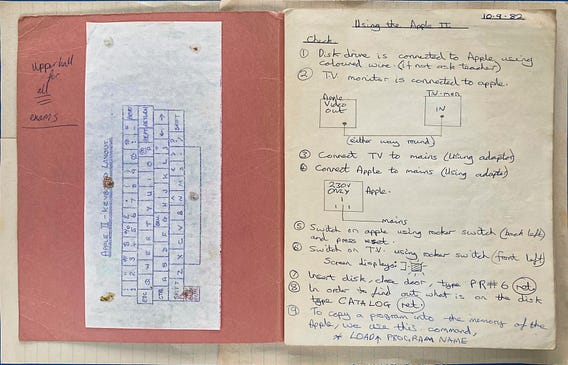 Upper hall
for
all
exams
APPLE II - KEYBOARD LAYOUT
ESC Q W E R T Y U I O P REPT RETURN
CTRL A S D F G H J K L ; ← →
SHIFT Z X C V B N M , . / SHIFT
10.9.82
Using the Apple II
Check
① Disk drive is connected to Apple using
coloured wire. (if not ask teacher)
② T.V. monitor is connected to apple.
Apple
Video
Out
T.V. mon.
IN
(either way round)
③ Connect TV to mains (Using adaptor)
④ Connect Apple to mains (Using adaptor)
230V
ONLY
Apple.
mains
⑤ Switch on apple using rocker switch (back left)
and press reset.
⑥ Switch on T.V. using rocker switch (front left)
Screen displays: ]
⑦ Insert disk, close door, type PR#6 (ret.)
⑧ In order to find out what is on the disk
type CATALOG (ret.)
⑨ To copy a program into the memory of the
Apple, we use this command,
* LOAD↑ PROGRAM NAME